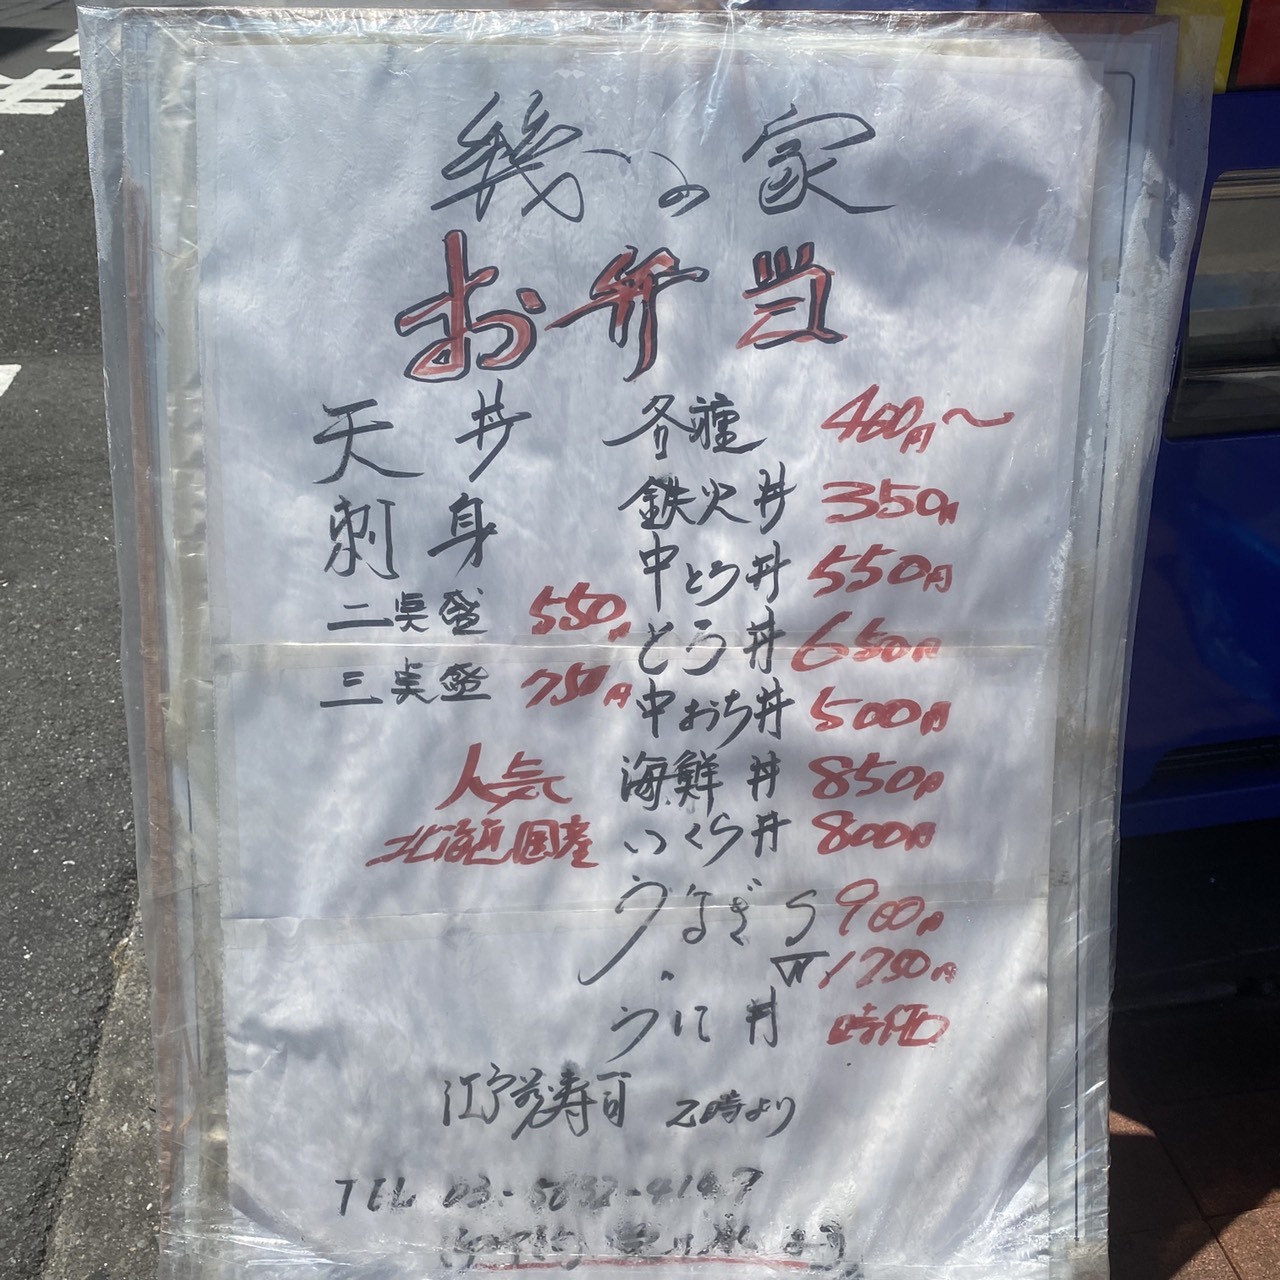 幾の家
お弁当
天丼 各種 400円～
刺身 鉄火丼 350円
中とろ丼 550円
二点盛 550円 とろ丼 650円
三点盛 750円 中おち丼 500円
人気 海鮮丼 850円
北海道国産 いくら丼 800円
うなぎ 900円
1750円
うに丼 時価
江戸前寿司 2時より
TEL 03-5832-4147